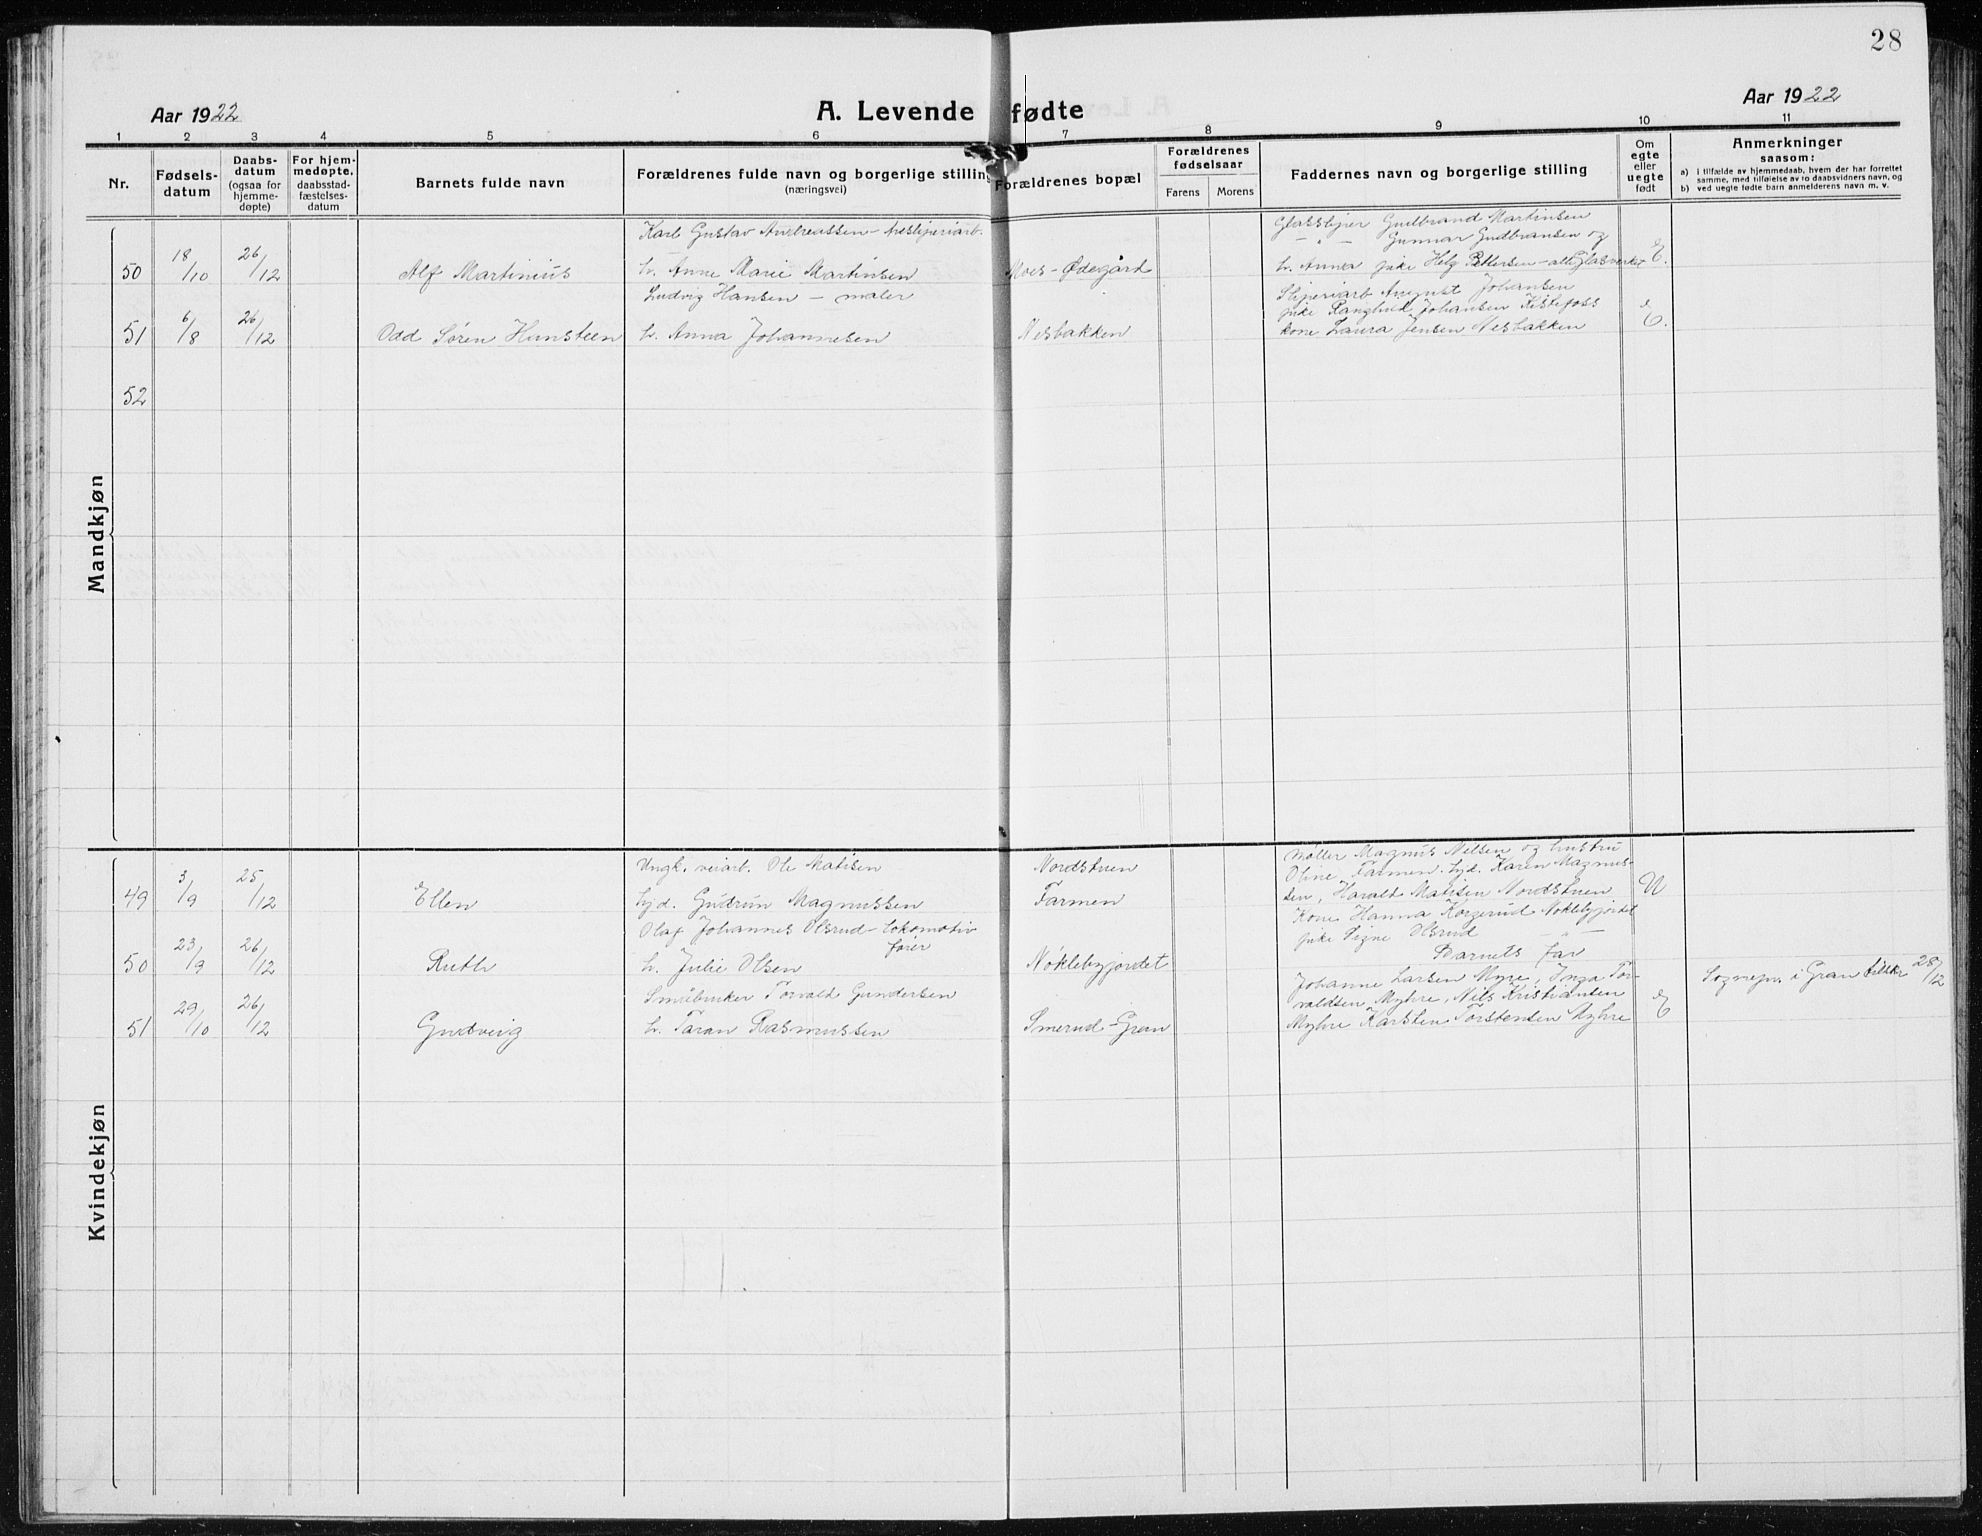 28
Aar 1922
A. Levende fødte
Aar 1922
1 2 3 4 5 6 7 8 9 10 11
Nr.
Fødsels-
datum
Daabs-
datum
(ogsaa for
hjemme-
døpte)
For hjem-
medøpte,
daabsstad-
fæstelses-
datum
Barnets fulde navn
Forældrenes fulde navn og borgerlige stilling
(næringsvei)
Forældrenes bopæl
Forældrenes
fødselsaar
Farens Morens
Faddernes navn og borgerlige stilling
Om
egte
eller
uegte
født
Anmerkninger
saasom:
a) i tilfælde av hjemmedaab, hvem der har forrettet
samme, med tilføielse av to daabsvidners navn, og
b) ved uegte fødte barn anmelderens navn m. v.
Mandkjøn
50 18/10 26/12 Alf Martinius
Karl Gustav Andreassen
h. Anne Marie Martinsen
Moes-Ødegård
Glassliper Gudbrand Martinsen
— " — Gunnar Gudbransen og
h. Anna pike Helg Pettersen - alle Glasverket
E.
51 6/8 26/12 Odd Søren Hunsteen
Ludvig Hansen — maler
h. Anna Johannesen
Nesbakken
Sliperiarb August Johansen
pike Ranghild Johansen Kistefoss
kone Laura Jensen Nesbakken
E.
52
Kvindekjøn
49 3/9 25/12 Ellen
Ungk. veiarb. Ole Matisen
hjd. Gudrun Magnussen
Nordstuen
Farmen
Møller Magnus Nelsen og hustru
Oline Farmen. hjd. Karen Magnus-
sen, Harald Matisen Nordstuen
U
50 23/9 26/12 Ruth
Olaf Johannes Olsrud - lokomotiv
fører
h. Julie Olsen
Nøklebyjordet
Kone Hanna Korgerud Nøklebyjordet
pike Signe Olsrud — " —
Barnets far
51 29/10 26/12 Gudveig
Småbruker Torvald Gundersen
h. Taran Rasmussen
Smerud - Gran
Johanne Larsen Myre, Inga Tor-
valdsen, Myhre, Nils Kristiansen
Myhre Karsten Torstensen Myhre
E
Sognepr. i Gran tilskr 28/12